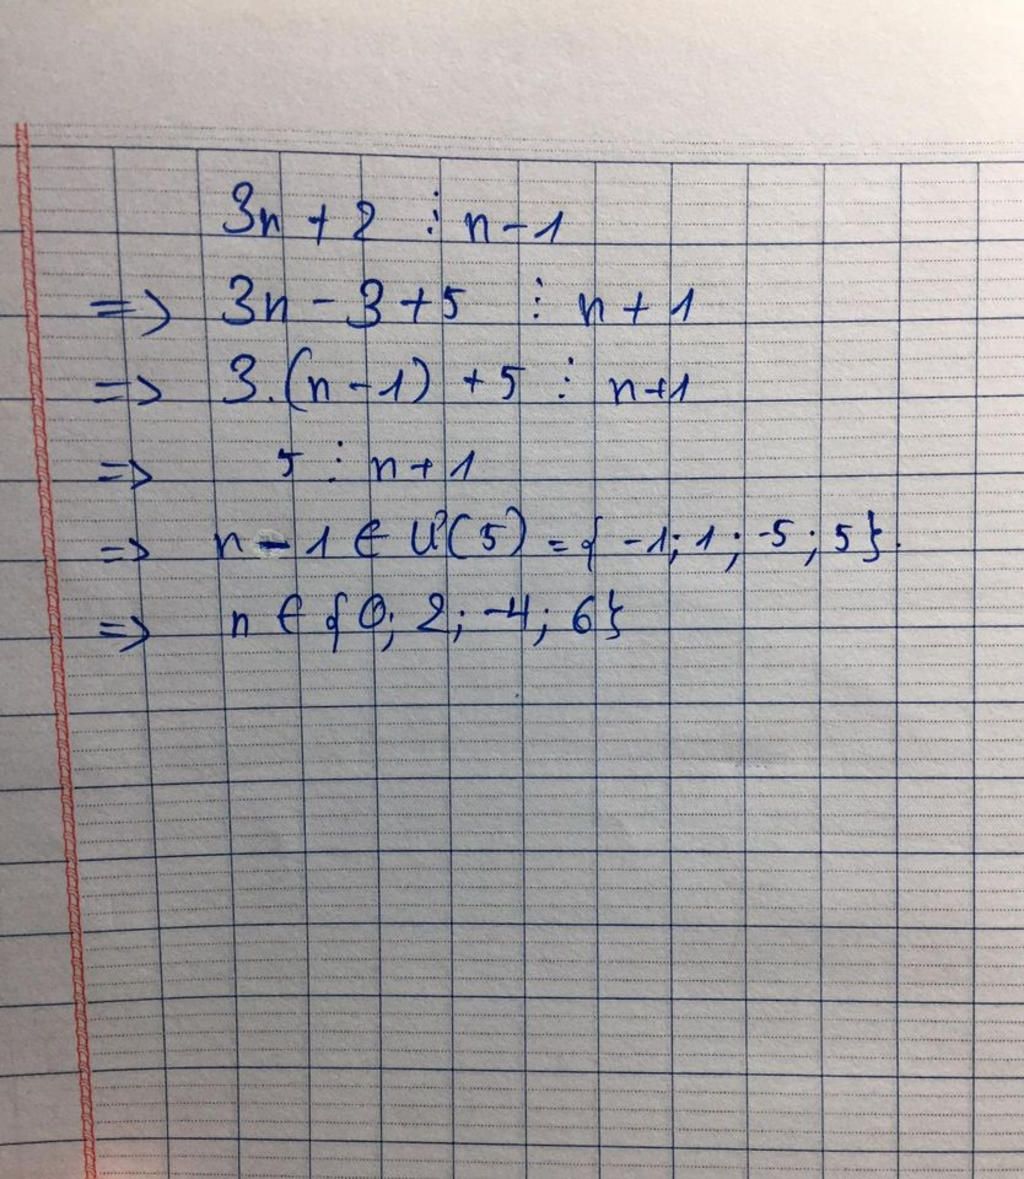 3n + 2 ⋮ n - 1
=> 3n - 3 + 5 ⋮ n + 1
=> 3.(n - 1) + 5 ⋮ n + 1
=> 5 ⋮ n + 1
=> n - 1 ∈ Ư(5) = { -1; 1; -5; 5}.
=> n ∈ {0; 2; -4; 6}